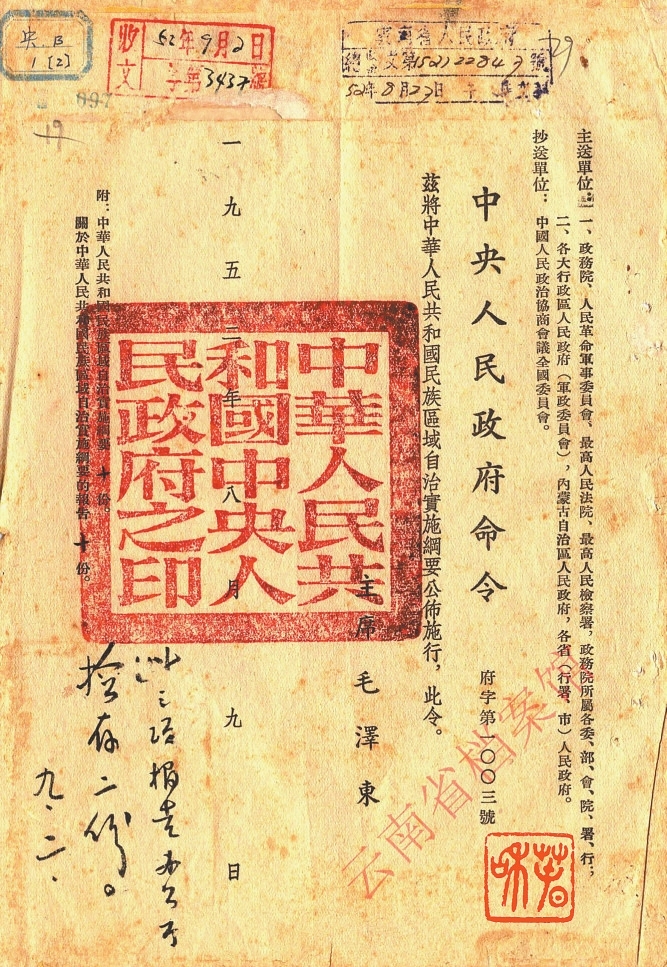 主送單位：一、政務院、人民革命軍事委員會、最高人民法院、最高人民檢察署，政務院所屬各委、部、會、院、署、行；
二、各大行政區人民政府（軍政委員會），內蒙古自治區人民政府，各省（行署、市）人民政府。
抄送單位：中國人民政治協商會議全國委員會。
中央人民政府命令
府字第一〇〇三號
茲將中華人民共和國民族區域自治實施綱要公佈施行，此令。
主席 毛澤東
一九五二年八月九日
附：中華人民共和國民族區域自治實施綱要 十份。
關於中華人民共和國民族區域自治實施綱要的報告 十份。
中華人民共
和國中央人
民政府之印
雲南省人民政府
52年8月23日
收文
52年9月2日
字第3437號
央B
1[2]
697
19
29
檢存二份。
九.二.
云南省档案馆